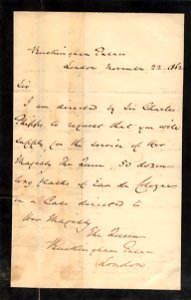 Buckingham Palace
London November 22. 1862
Sir
I am directed by Sir Charles
Phipps to request that you will
supply for the service of Her
Majesty The Queen, 50 dozen
long flasks of Eau de Cologne
in a Case directed to
Her Majesty
The Queen
Buckingham Palace
London